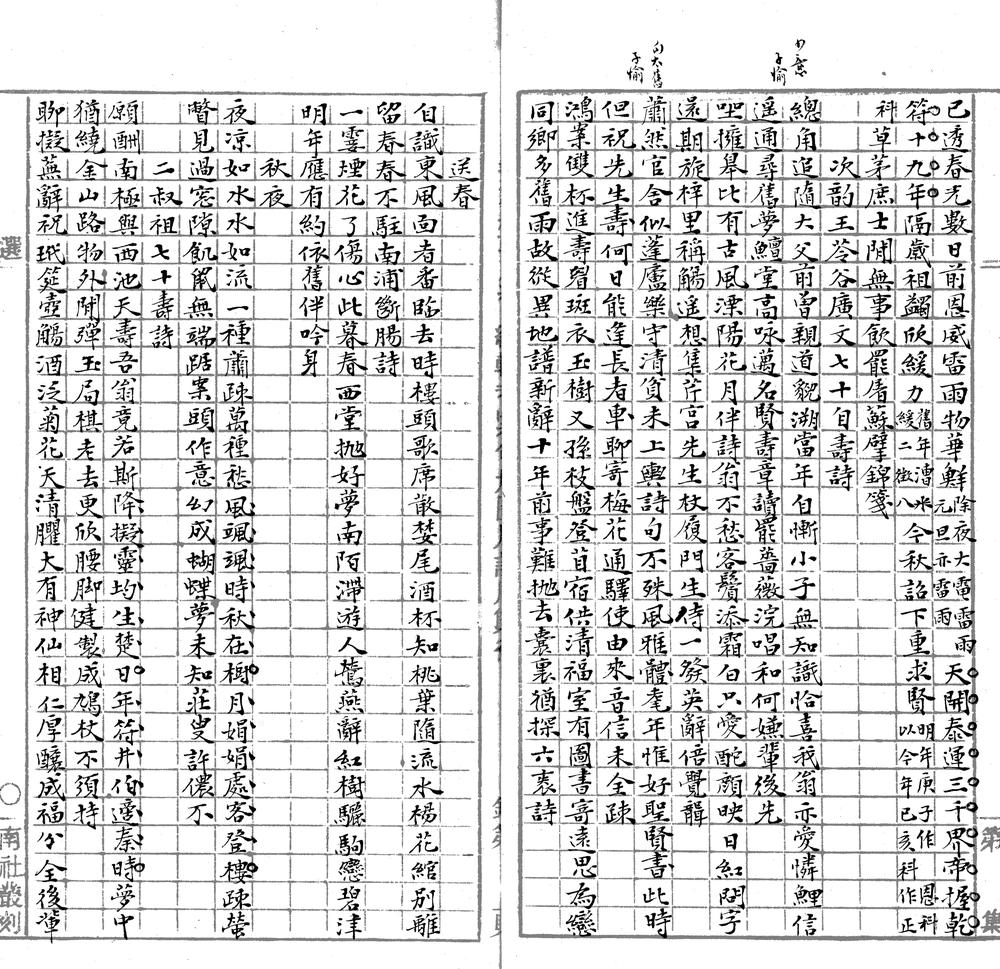 已透春光數日前恩威雷雨物華鮮除夜大雷雨元旦亦雷雨天開泰運三千界帝握乾
符十九年隔歲祖蠲欣緩力舊年漕米今秋詔下重求賢明年庚子作恩科
緩二徵八以今年己亥科作正
科草茅庶士閒無事飲罷屠蘇擘錦箋
次韵王苓谷廣文七十自壽詩
總角追隨大父前曽親道貌溯當年自慚小子無知識恰喜我翁亦愛憐鯉信
遥通尋舊夢鱣堂高咏萬名賢壽章讀罷薔薇浣唱和何嫌輩後先
坐擁皋比有古風溧陽花月伴詩翁不愁客鬢添霜白只愛酡顔映日紅問字
還期旋梓里稱觴遥想集芹宫先生杖履門生侍一發英辭倍覺韻
蕭然官舎似蓬廬樂守清貧未上輿詩句不殊風雅體耄年惟好聖賢書此時
但祝先生壽何日能逢長者車聊寄梅花通驛使由來音信未全疎
鴻案雙杯進壽觴斑衣玉樹又孫枝盤登苜宿供清福室有圖書寄遠思為戀
同鄉多舊雨故從異地譜新辭十年前事難抛去囊裏猶探六袠詩
送春
自識東風面者番臨去時樓頭歌席散婪尾酒杯知桃葉隨流水楊花綰别離
留春春不駐南浦斷腸詩
一霎煙花了傷心此暮春西堂抛好夢南陌滯遊人鶯燕辭紅樹驪駒戀碧津
明年應有約依舊伴吟身
秋夜
夜凉如水水如流一種蕭疎萬種愁風颯颯時秋在樹月娟娟處客登樓疎螢
瞥見過窓隙飢鼠無端踞案頭作意幻成蝴蝶夢未知莊叟許儂不
二叔祖七十壽詩
願酬南極與西池天壽吾翁竟若斯降擬靈均生楚日年符井伯適秦時夢中
猶繞金山路物外閒彈玉局棋老去更欣腰脚健製成鳩杖不須持
聊擬蕪辭祝玳筵壺觴酒泛菊花天清臞大有神仙相仁厚釀成福分全後輩
選
南社叢刻
第
集
子愉
子愉